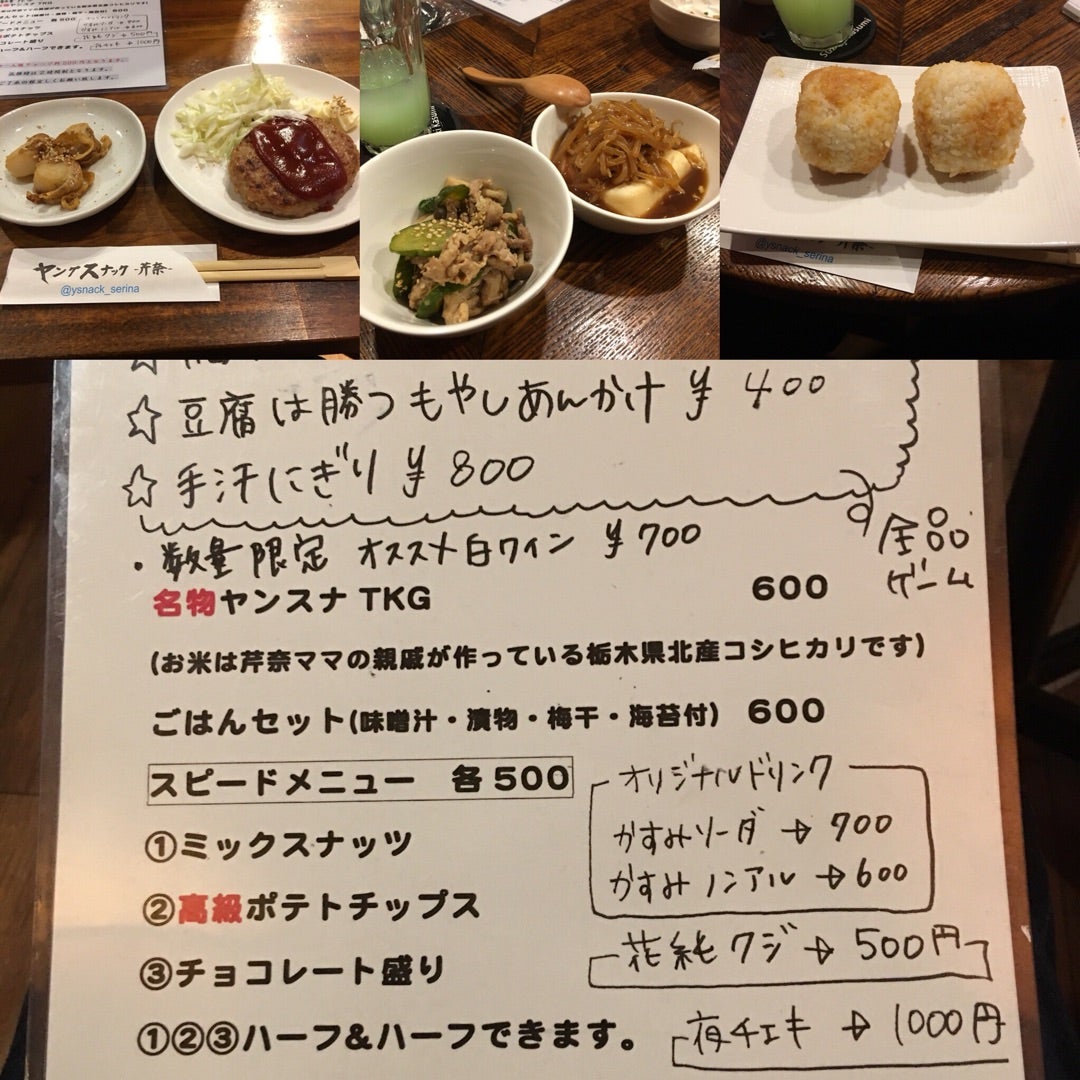 各500
ご了承の程宜しくお願い致します。
ヤングスナック -芹奈-
@ysnack_serina
-芹奈-
@ysnack_serina
☆ 豆腐は勝つもやしあんかけ ¥ 400
☆ 手汗にぎり ¥ 800
・数量限定 オススメ白ワイン ¥700
全品
ゲーム
名物ヤンスナ TKG 600
(お米は芹奈ママの親戚が作っている栃木県北産コシヒカリです)
ごはんセット(味噌汁・漬物・梅干・海苔付) 600
スピードメニュー 各500
①ミックスナッツ
②高級ポテトチップス
③チョコレート盛り
①②③ハーフ&ハーフできます。
オリジナルドリンク
かすみソーダ → 700
かすみノンアル → 600
花純クジ → 500円
夜チェキ → 1000円